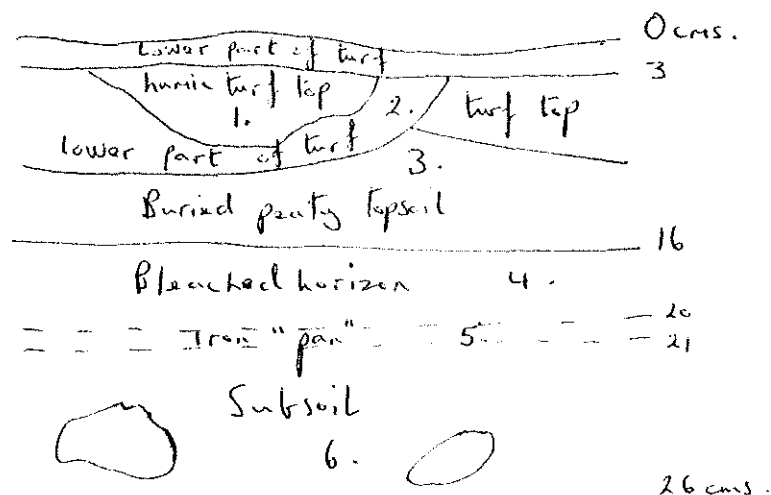 0 cms.
Lower part of turf
3
humic turf top
1.
2.
turf top
lower part of turf
3.
Buried peaty topsoil
16
Bleached horizon 4.
20
Iron "pan" 5.
21
Subsoil
6.
26 cms.